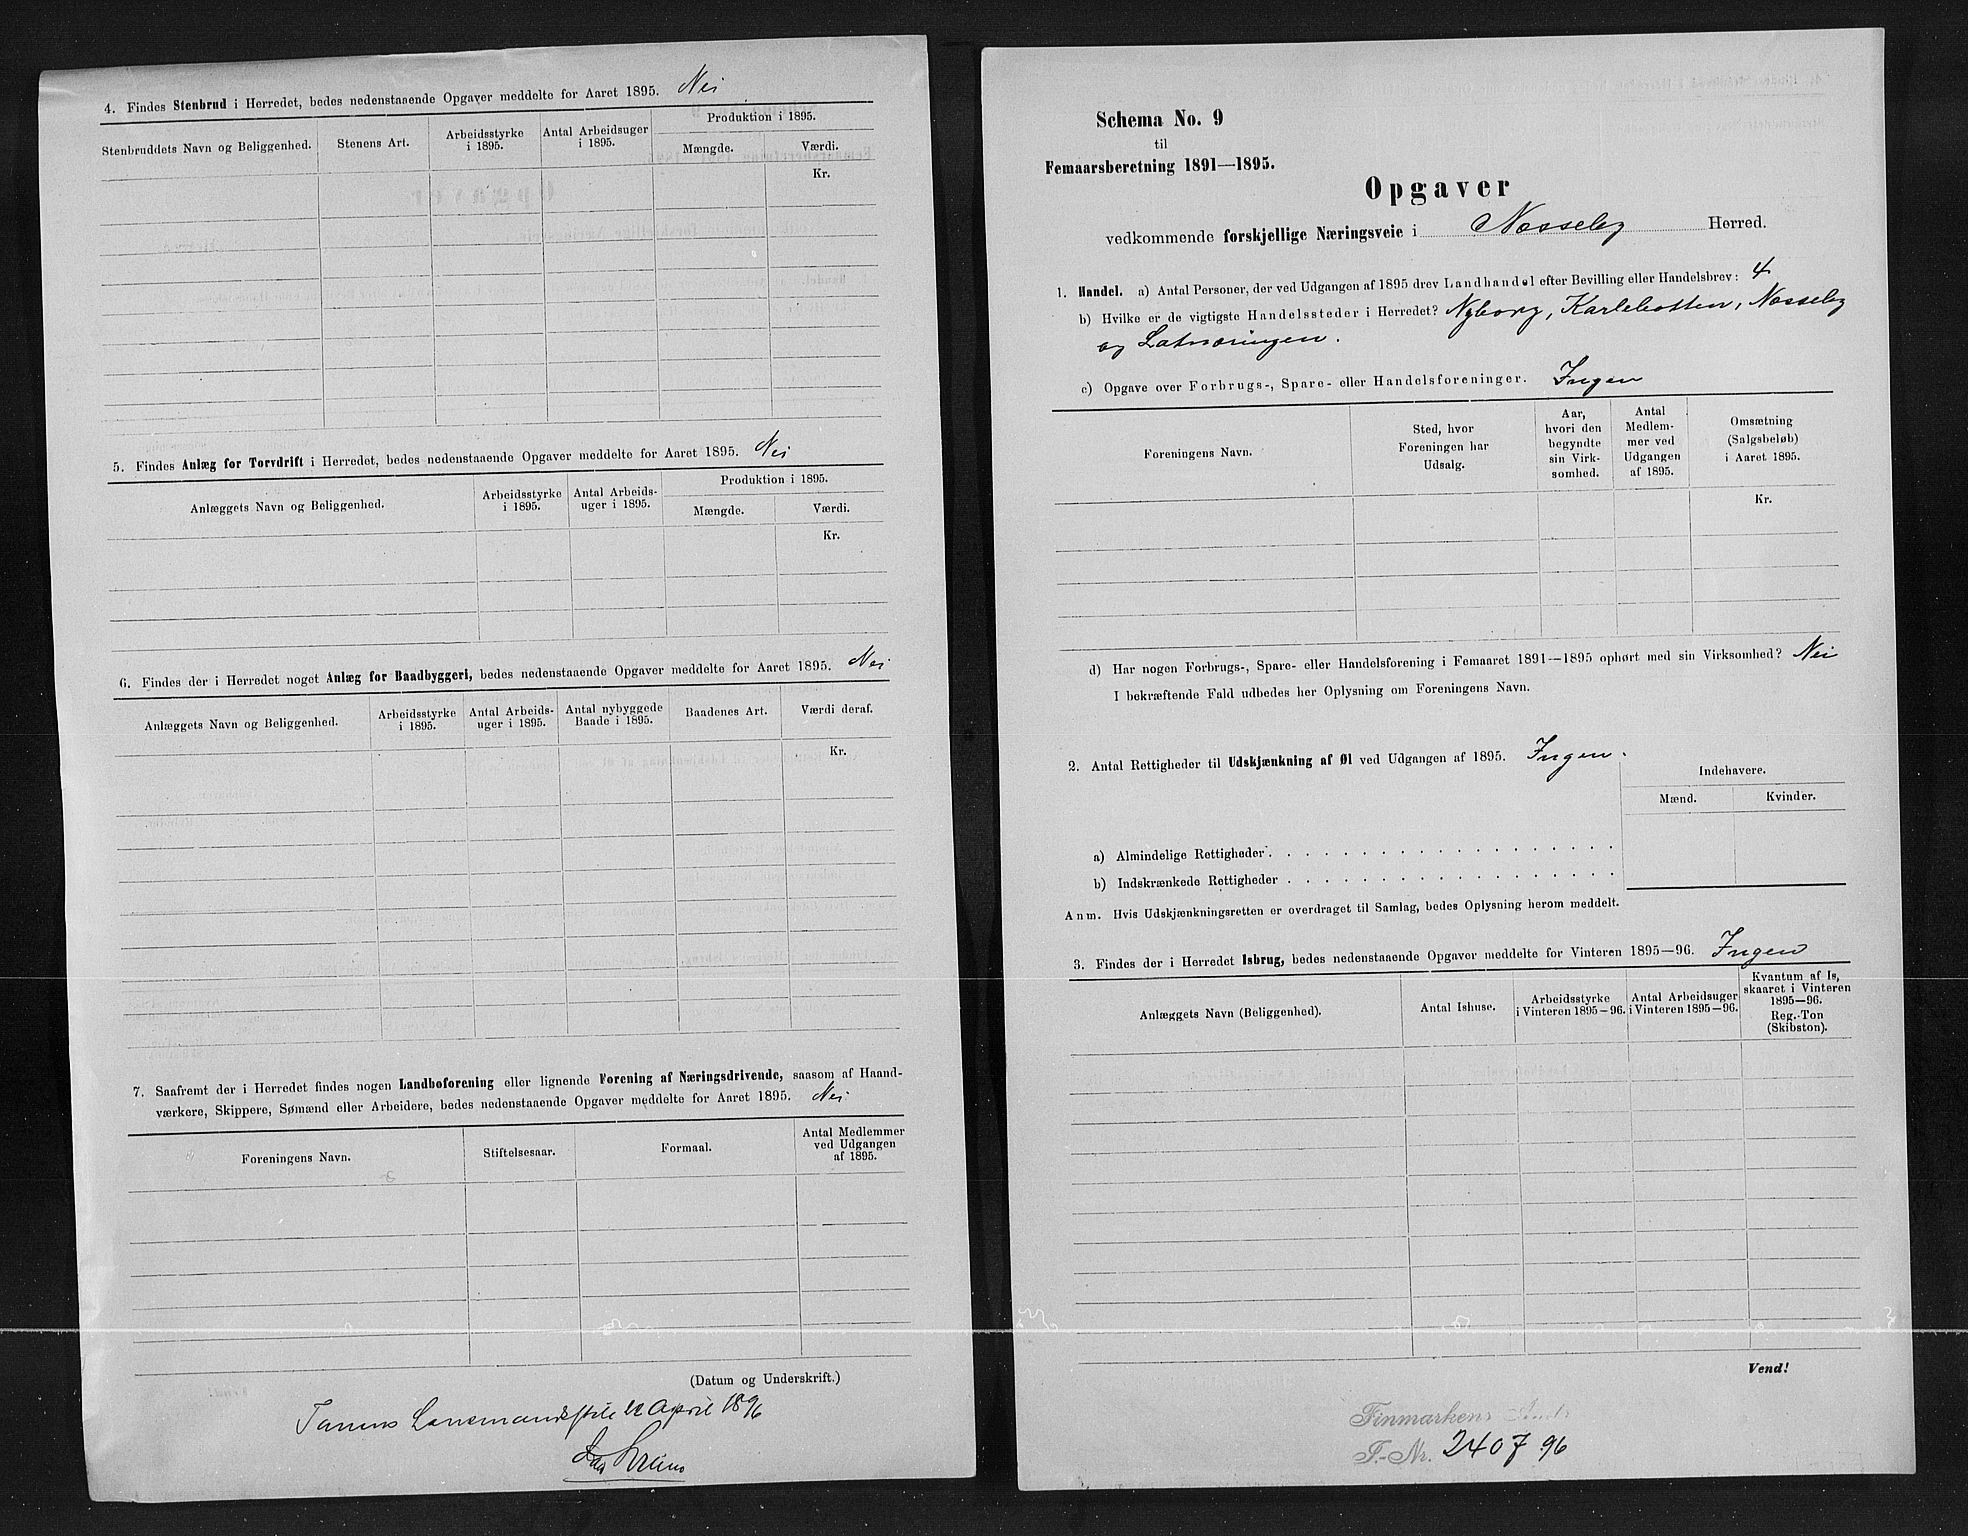 4. Findes Stenbrud i Herredet, bedes nedenstaaende Opgaver meddelte for Aaret 1895. Nei
Stenbruddets Navn og Beliggenhed.
Stenens Art.
Arbeidsstyrke
i 1895.
Antal Arbeidsuger
i 1895.
Produktion i 1895.
Mængde.
Værdi.
Kr.
5. Findes Anlæg for Torvdrift i Herredet, bedes nedenstaaende Opgaver meddelte for Aaret 1895. Nei
Anlæggets Navn og Beliggenhed.
Arbeidsstyrke
i 1895.
Antal Arbeids-
uger i 1895.
Produktion i 1895.
Mængde.
Værdi.
Kr.
6. Findes der i Herredet noget Anlæg for Baadbyggeri, bedes nedenstaaende Opgaver meddelte for Aaret 1895. Nei
Anlæggets Navn og Beliggenhed.
Arbeidsstyrke
i 1895.
Antal Arbeids-
uger i 1895.
Antal nybyggede
Baade i 1895.
Baadenes Art.
Værdi deraf.
Kr.
7. Saafremt der i Herredet findes nogen Landboforening eller lignende Forening af Næringsdrivende, saasom af Haand-
værkere, Skippere, Sømænd eller Arbeidere, bedes nedenstaaende Opgaver meddelte for Aaret 1895. Nei
Foreningens Navn.
Stiftelsesaar.
Formaal.
Antal Medlemmer
ved Udgangen
af 1895.
(Datum og Underskrift.)
April 1896
Schema No. 9
til
Femaarsberetning 1891—1895.
Opgaver
vedkommende forskjellige Næringsveie i Nesseby Herred.
1. Handel. a) Antal Personer, der ved Udgangen af 1895 drev Landhandel efter Bevilling eller Handelsbrev: 4
b) Hvilke er de vigtigste Handelssteder i Herredet? Nyborg, Karlebotten, Nesseby
og
c) Opgave over Forbrugs-, Spare- eller Handelsforeninger. Ingen
Foreningens Navn.
Sted, hvor
Foreningen har
Udsalg.
Aar,
hvori den
begyndte
sin Virk-
somhed.
Antal
Medlem-
mer ved
Udgangen
af 1895.
Omsætning
(Salgsbeløb)
i Aaret 1895.
Kr.
d) Har nogen Forbrugs-, Spare- eller Handelsforening i Femaaret 1891—1895 ophørt med sin Virksomhed? Nei
I bekræftende Fald udbedes her Oplysning om Foreningens Navn.
2. Antal Rettigheder til Udskjænkning af Øl ved Udgangen af 1895. Ingen.
Indehavere.
Mænd.
Kvinder.
a) Almindelige Rettigheder
b) Indskrænkede Rettigheder
Anm. Hvis Udskjænkningsretten er overdraget til Samlag, bedes Oplysning herom meddelt.
3. Findes der i Herredet Isbrug, bedes nedenstaaende Opgaver meddelte for Vinteren 1895—96. Ingen
Anlæggets Navn (Beliggenhed).
Antal Ishuse.
Arbeidsstyrke
i Vinteren 1895—96.
Antal Arbeidsuger
i Vinteren 1895—96.
Kvantum af Is,
skaaret i Vinteren
1895—96.
Reg.-Ton
(Skibston).
Vend!
Finmarkens Amt
F.-Nr. 2407 96